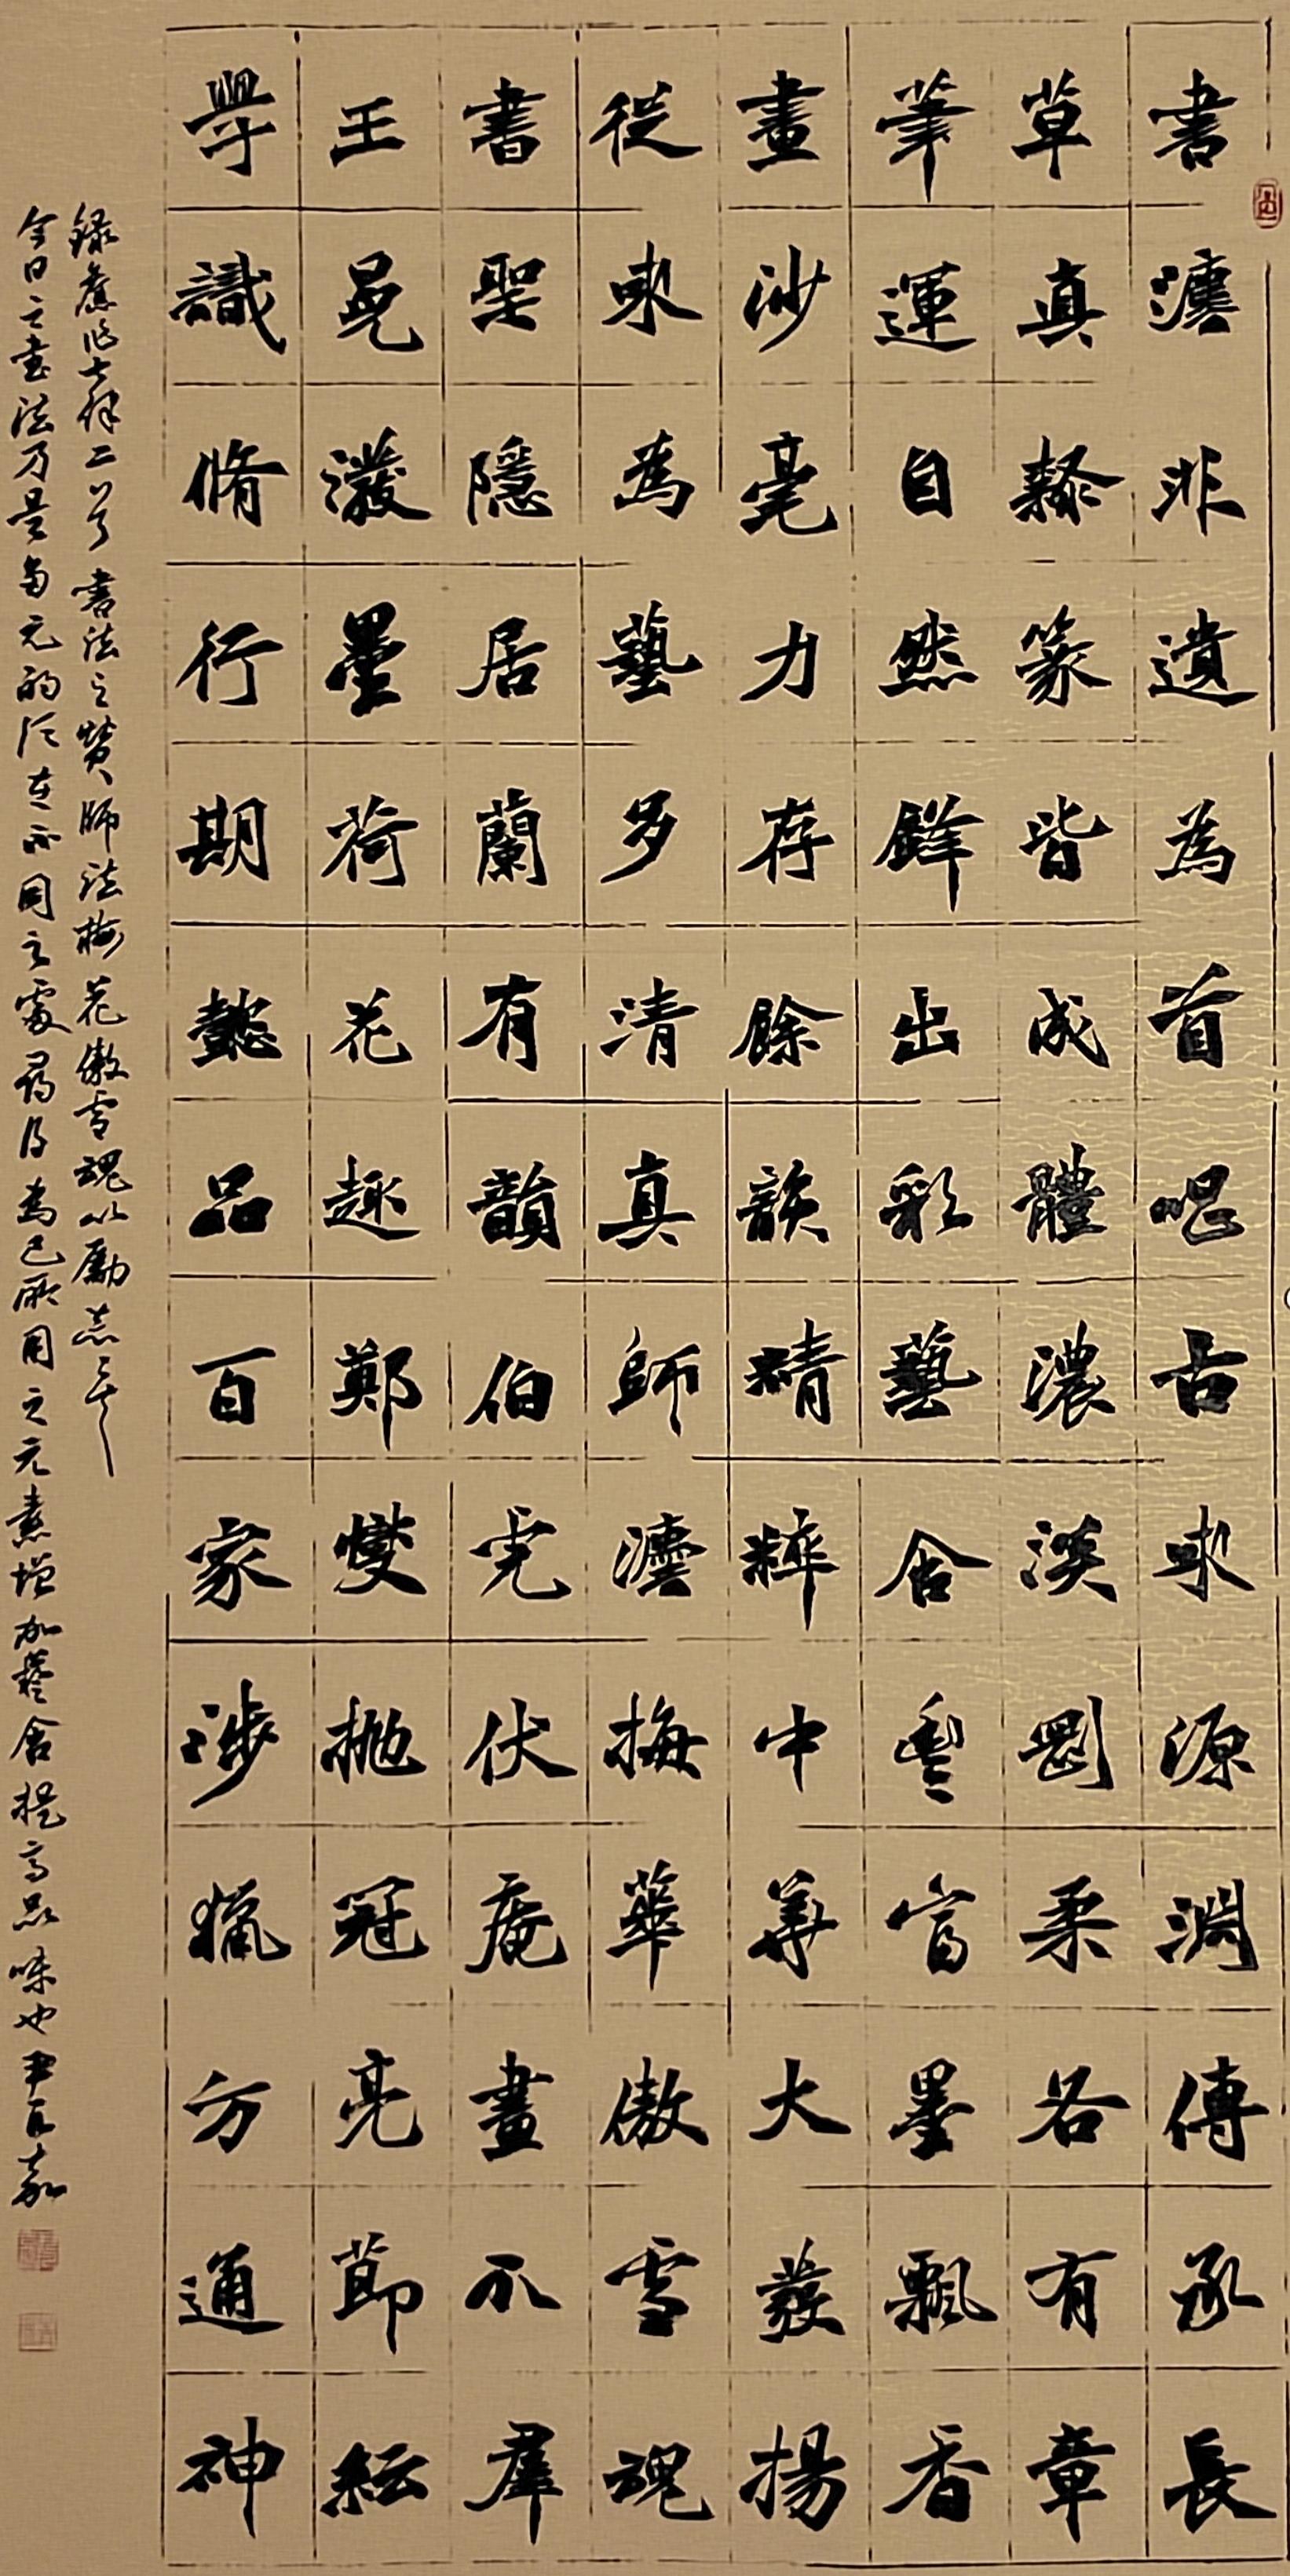 書灋非遺為首唱古來源淵傳承長
草真隸篆皆成體濃淡剛柔各有章
筆運自然鋒出彩藝含豐富墨飄香
畫沙毫力存餘韻精粹中華大發揚
從來為藝多清真師灋梅華傲雪魂
書聖隱居蘭有韻伯虎伏庵畫不群
王冕潑墨荷花趣鄭燮拋冠亮節紜
學識脩行期懿品百家涉獵方通神
錄舊作七律二首書法之贊師法梅花傲雪魂以勵志之
今日之書法乃是多元的在不同之處尋得為己所用之元素增加蘊含提高品味也